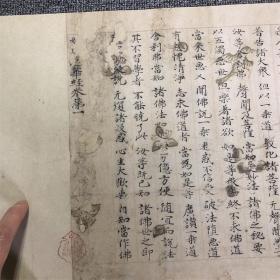 普告諸大眾 但以一乘道 教化諸菩薩 無聲聞弟子
汝等舍利弗 聲聞及菩薩 當知是妙法 諸佛之秘要
以五濁惡世 但樂著諸欲 如是等眾生 終不求佛道
當來世惡人 聞佛說一乘 迷惑不信受 破法墮惡道
有慚愧清淨 志求佛道者 當為如是等 廣讚一乘道
舍利弗當知 諸佛法如是 以万億方便 隨宜而說法
其不習學者 不能曉了此 汝等既已知 諸佛世之師
無復諸疑惑 心生大歡喜 自知當作佛
經卷第一